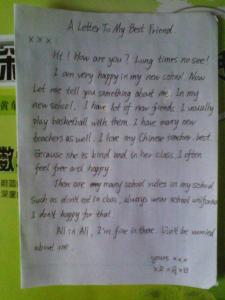 A Letter To My Best Friend
x x x :
Hi! How are you? Lung times no see!
I am very happy in my new school. Now
Let me tell you something about me. In my
new school. I have lot of new friends. I usually
play basketball with them. I have many new
teachers as well. I love my Chinese teacher best.
Because she is kind and in her class, I often
feel free and happy.
There are many school rules in my school
Such as don't eat in class, always wear school uniforms
I don't happy for that.
All in All, I'm fine in there. Don't be worried
about me.
yours x x x
x月x日
数